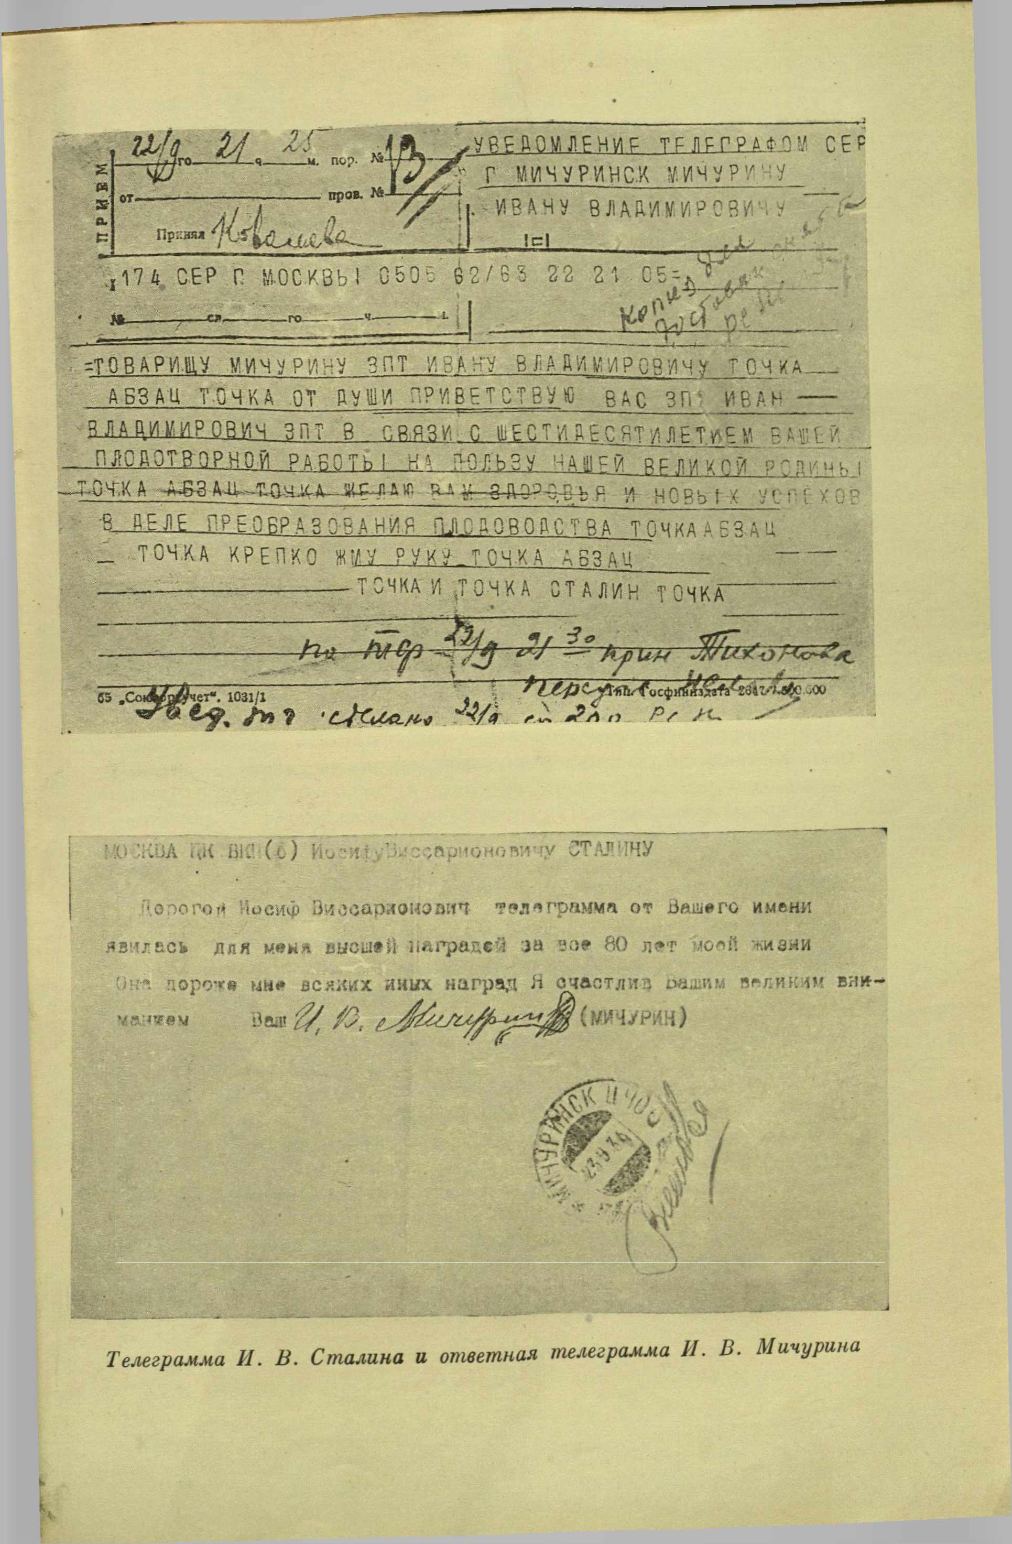 ПРИЕМ
22/9 го 21 ч. 25 м. пор. № 13
от пров. №
Принял Ковалева
УВЕДОМЛЕНИЕ ТЕЛЕГРАФОМ СЕР
Г МИЧУРИНСК МИЧУРИНУ
ИВАНУ ВЛАДИМИРОВИЧУ
174 СЕР Г МОСКВЫ 0505 62/63 22 21 05=
№ сл. го ч.
=ТОВАРИЩУ МИЧУРИНУ ЗПТ ИВАНУ ВЛАДИМИРОВИЧУ ТОЧКА
АБЗАЦ ТОЧКА ОТ ДУШИ ПРИВЕТСТВУЮ ВАС ЗПТ ИВАН
ВЛАДИМИРОВИЧ ЗПТ В СВЯЗИ С ШЕСТИДЕСЯТИЛЕТИЕМ ВАШЕЙ
ПЛОДОТВОРНОЙ РАБОТЫ НА ПОЛЬЗУ НАШЕЙ ВЕЛИКОЙ РОДИНЫ
ТОЧКА АБЗАЦ ТОЧКА ЖЕЛАЮ ВАМ ЗДОРОВЬЯ И НОВЫХ УСПЕХОВ
В ДЕЛЕ ПРЕОБРАЗОВАНИЯ ПЛОДОВОДСТВА ТОЧКААБЗАЦ
ТОЧКА КРЕПКО ЖМУ РУКУ ТОЧКА АБЗАЦ
ТОЧКА И ТОЧКА СТАЛИН ТОЧКА
по тф 22/9 21 30 прин Тихонова
65 1031/1
22/9
МОСКВА ЦК ВКП(б) ИосифуВиссарионовичу СТАЛИНУ
Дорогой Иосиф Виссарионович телеграмма от Вашего имени
явилась для меня высшей наградой за все 80 лет моей жизни
Она дороже мне всяких иных наград Я счастлив Вашим великим вни-
манием Ваш И. В. Мичурин (МИЧУРИН)
МИЧУРИНСК ЦЧО
23.9.34
Телеграмма И. В. Сталина и ответная телеграмма И. В. Мичурина